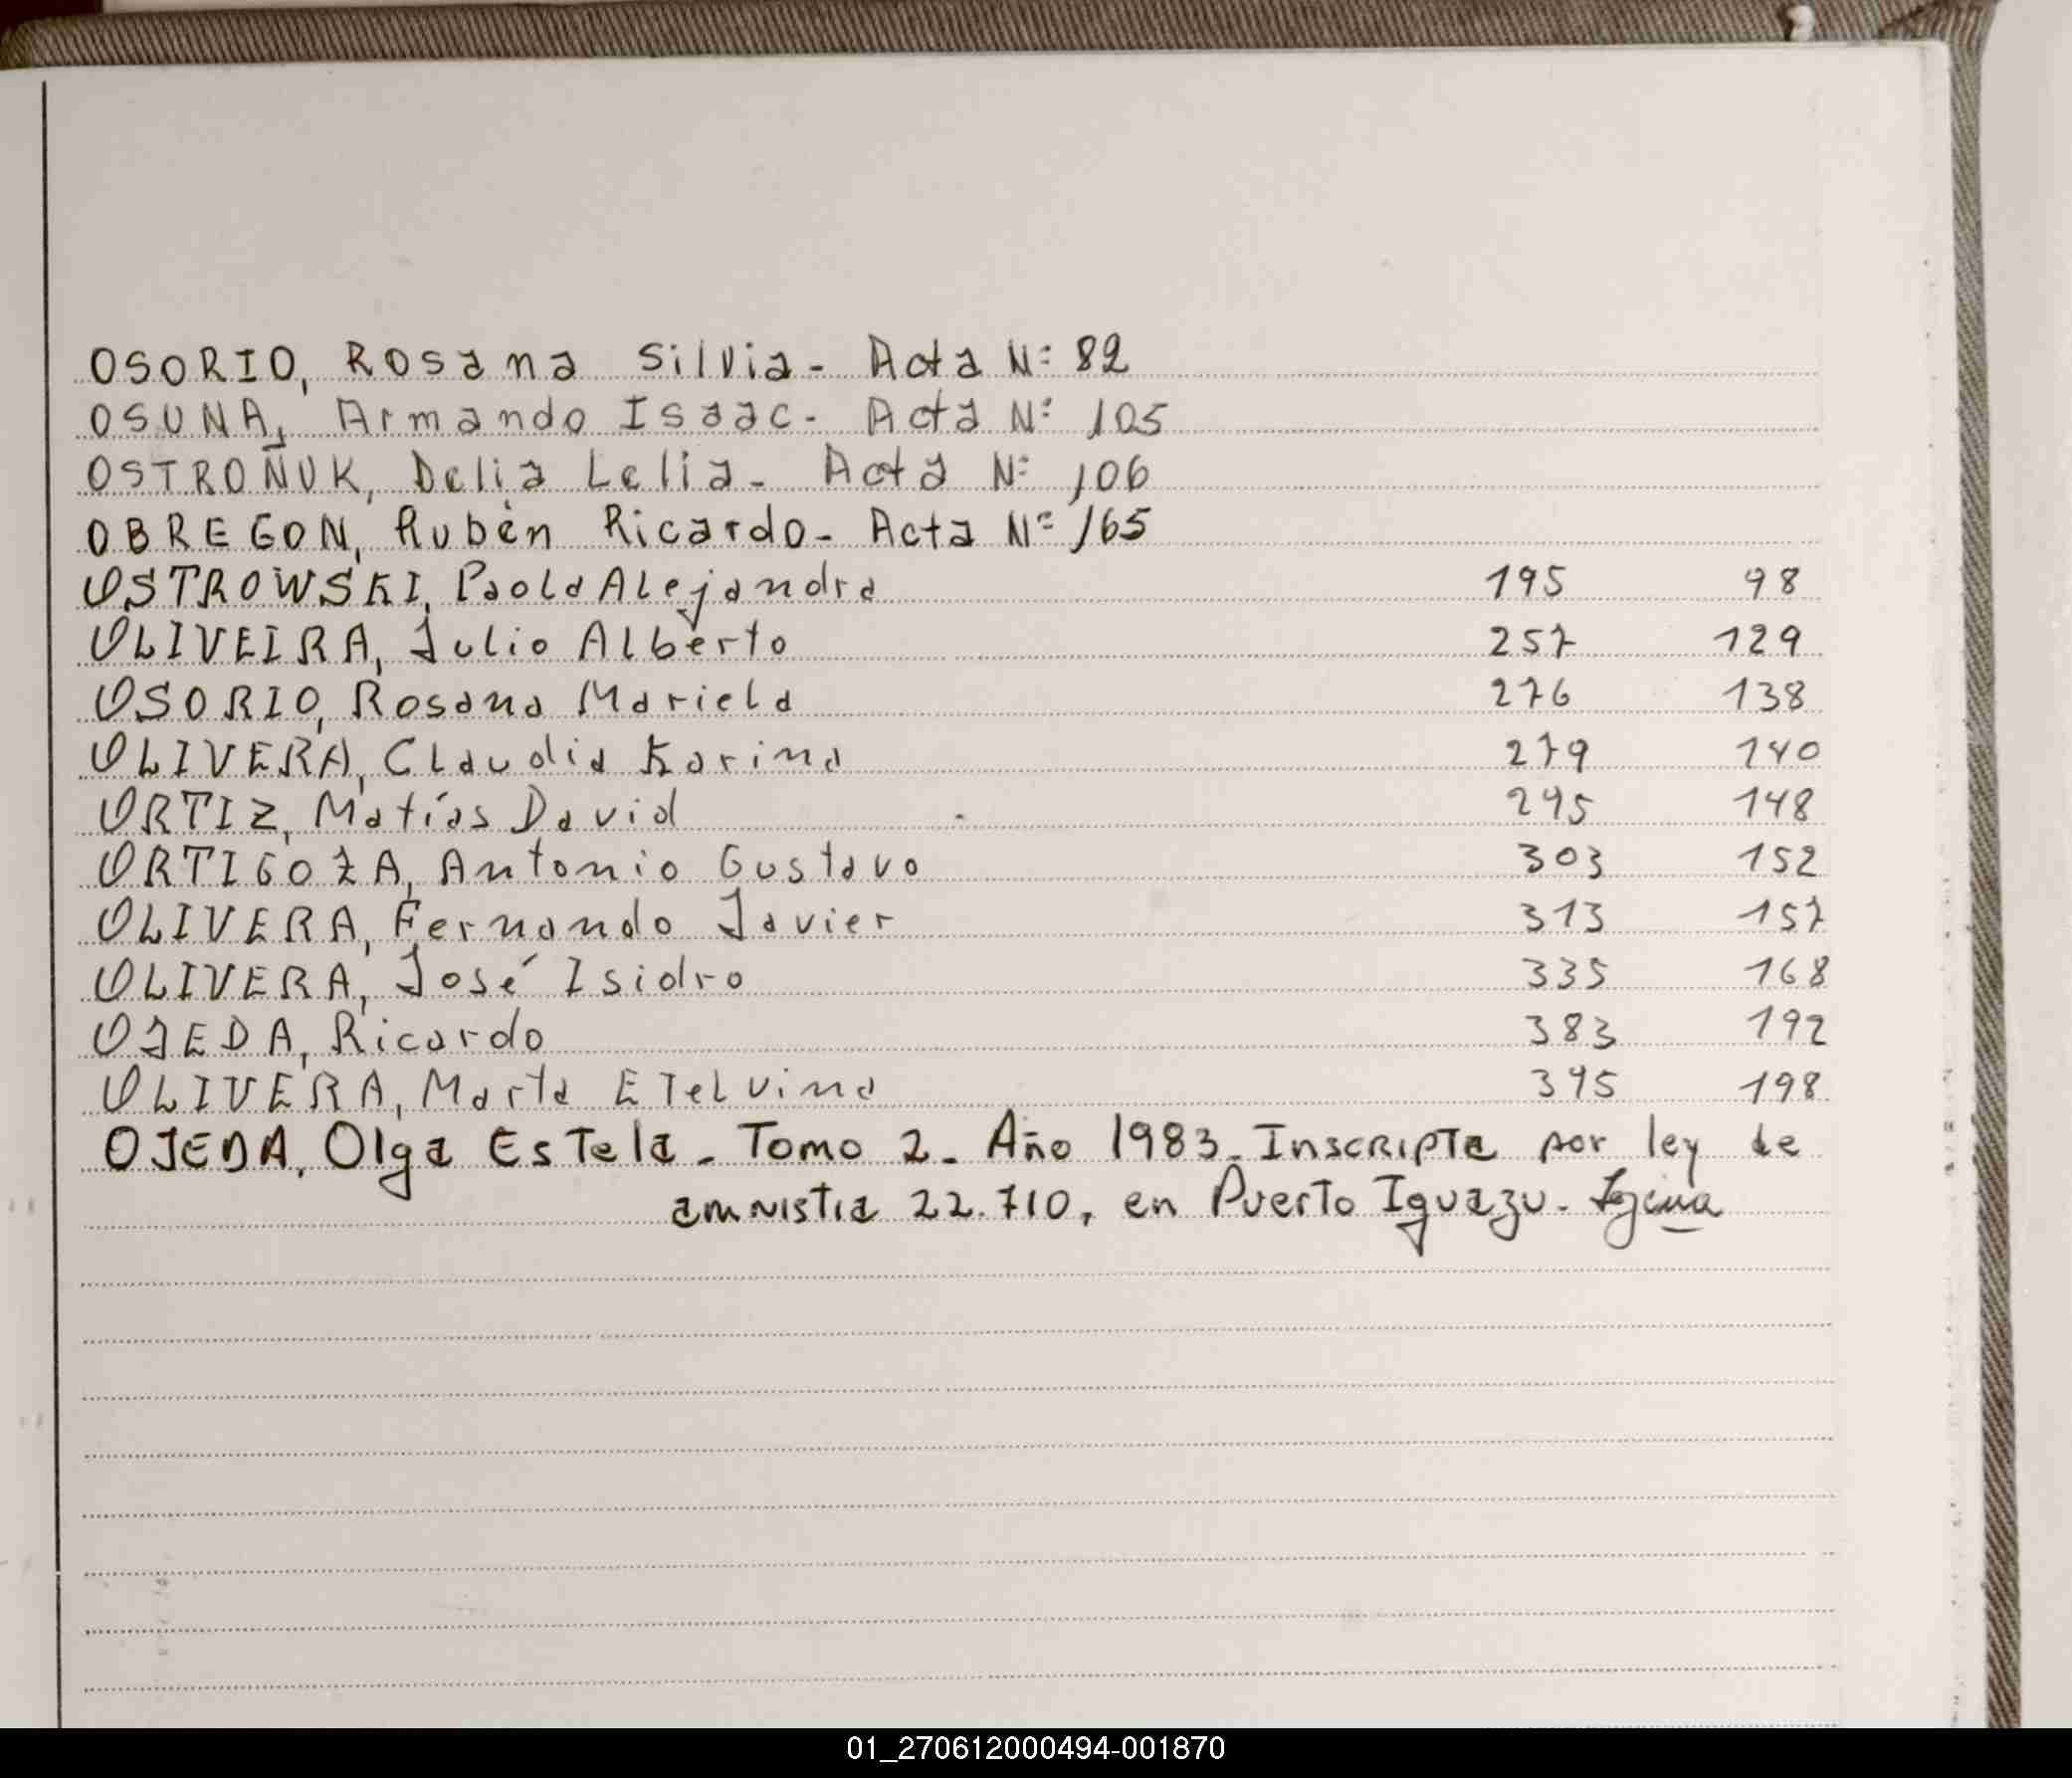 OSORIO, Rosana Silvia - Acta Nº 82
OSUNA, Armando Isaac - Acta Nº 105
OSTROÑUK, Delia Lelia - Acta Nº 106
OBREGON, Rubén Ricardo - Acta Nº 165
OSTROWSKI, Paola Alejandra 195 98
OLIVEIRA, Julio Alberto 257 129
OSORIO, Rosana Mariela 276 138
OLIVERA, Claudia Karina 279 140
ORTIZ, Matías David 295 148
ORTIGOZA, Antonio Gustavo 303 152
OLIVERA, Fernando Javier 313 157
OLIVERA, José Isidro 335 168
OJEDA, Ricardo 383 192
OLIVERA, Marta Etelvina 395 198
OJEDA, Olga Estela - Tomo 2 - Año 1983 - Inscripta por ley de
amnistia 22.710, en Puerto Iguazu -
01_270612000494-001870